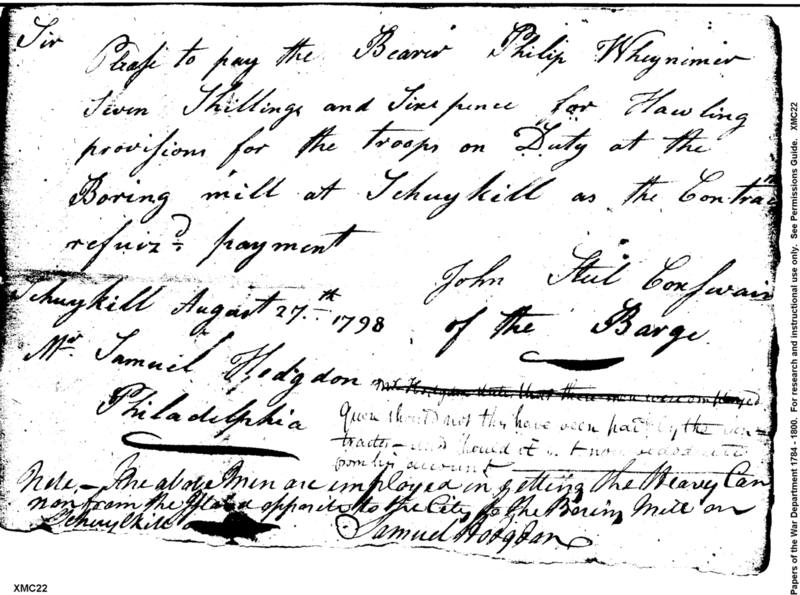 Sir
Please to pay the Bearer Philip Wheynimer
Seven Shillings and Sixpence for Hawling
provisions for the troops on Duty at the
Boring mill at Schuykill as the Contrac
refuizd payment
John Stul Conswain
of the Barge
Schuykill August 27th 1798
Mr Samuel Hodgdon
Philadelphia
Mr Hodgdon states that these men were employed
Quere should not this have been paid by the con=
tractor – and should it not now be deducted
from his account
Note – The above Men are employed in getting the Heavy Can
non from the Island opposite to the City to the Boring Mill on
Schuylkill
Samuel Hodgdon
XMC22
Papers of the War Department 1784 - 1800. For research and instructional use only. See Permissions Guide. XMC22